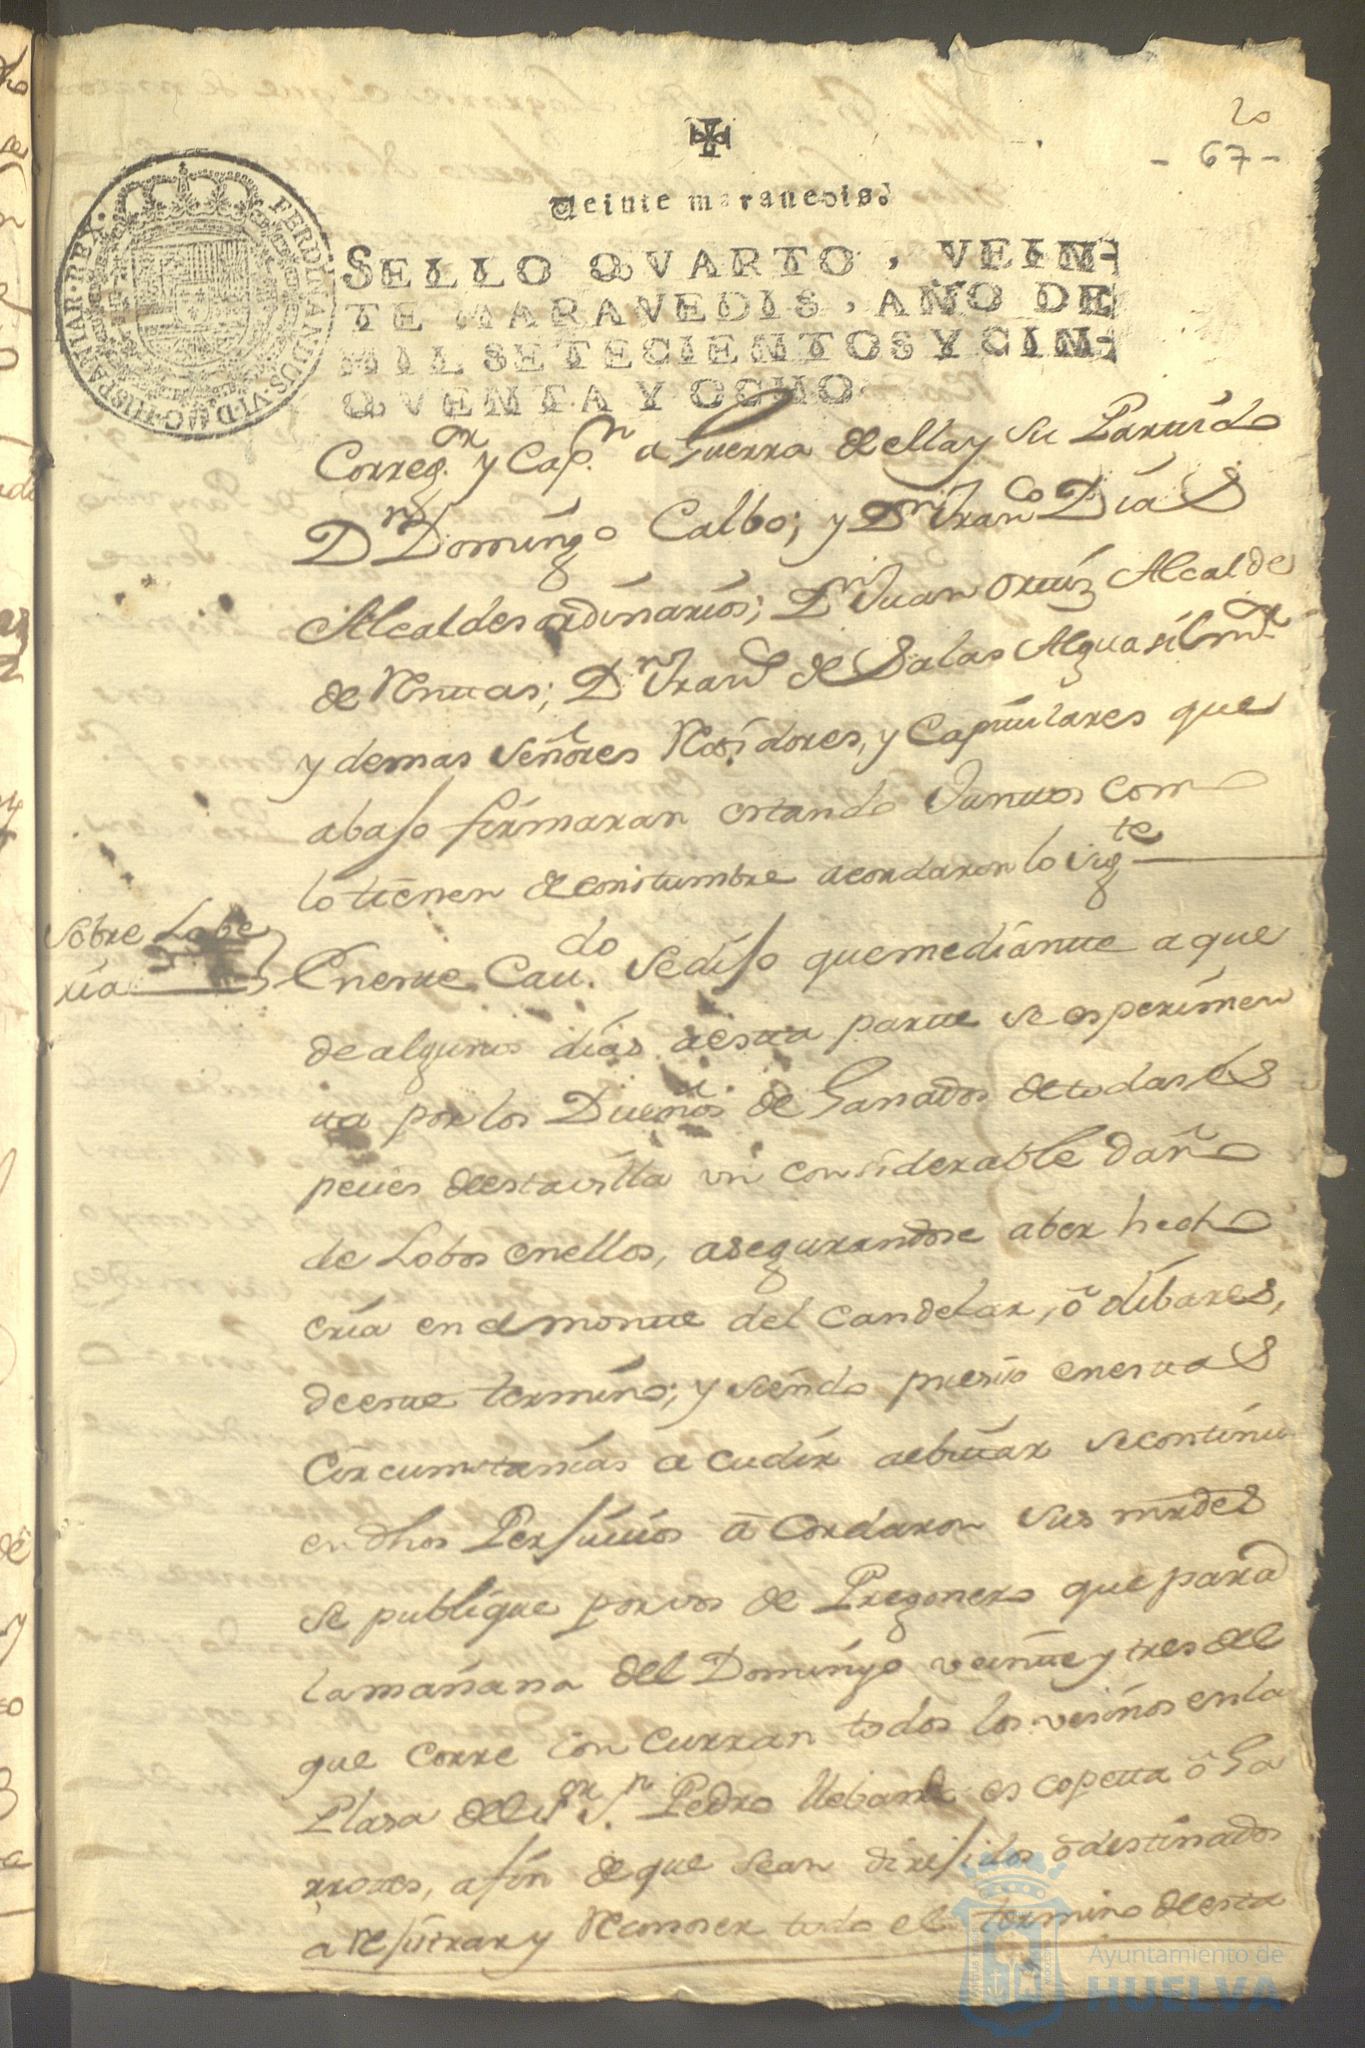 20
- 67 -
Veinte maravedis.
SELLO QVARTO, VEIN-
TE MARAVEDIS, AÑO DE
MIL SETECIENTOS Y CIN-
QVENTA Y OCHO
FERDINANDUS•VI•D•G•HISPANIAR•REX•
Correg.or y Cap.n a Guerra de ella y su Partido
Dn Domingo Calbo; y Dn Franco Dias
Alcaldes ordinarios; Dn Juan Ortiz Alcalde
de Rentas; Dn Franco de Salas Alguasil mor
y demas señores Rexidores, y Capitulares que
abajo firmaran estando Juntos como
lo tienen de constumbre acordaron lo sigte
Sobre Lobe
ria
En este Cau.do se dijo que mediante a que
de algunos dias a esta parte se esperimen
ta por los Dueños de Ganados de todas es
peties de esta villa un considerable daño
de Lobos en ellos, asegurandose aber hecho
cria en el monte del Candelar, ó dibares,
de este termino; y siendo presiso en estas
Circumstanias a cudir a ebitar se continu
en dhos Perjuitios a Cordaron sus mrdes
se publique por vos de Pregonero que para
la mañana del Domingo veinte y tres del
que corre con curran todos los vesinos en la
Plasa del Sor Sn Pedro llebando es copetta ô Ga
rrotes, a fin de que sean dirijidos ô destinados
a rejistrar y Reconoser todo el termino de esta
Ayuntamiento de
HUELVA